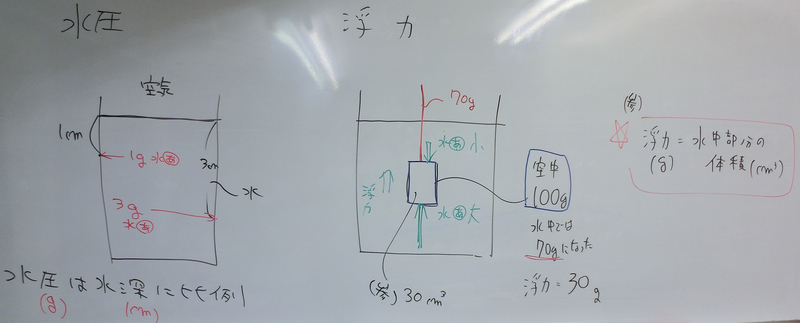 水圧
空気
1cm
1g 水あ
3cm
水
3g
水あ
水圧は水深に比例
(g)
(cm)
浮力
70g
水あ小
浮力
水あ大
(参) 30cm³
空中
100g
水中では
70gになった
浮力=30g
(参)
浮力=水中部分の
(g)
体積(cm³)